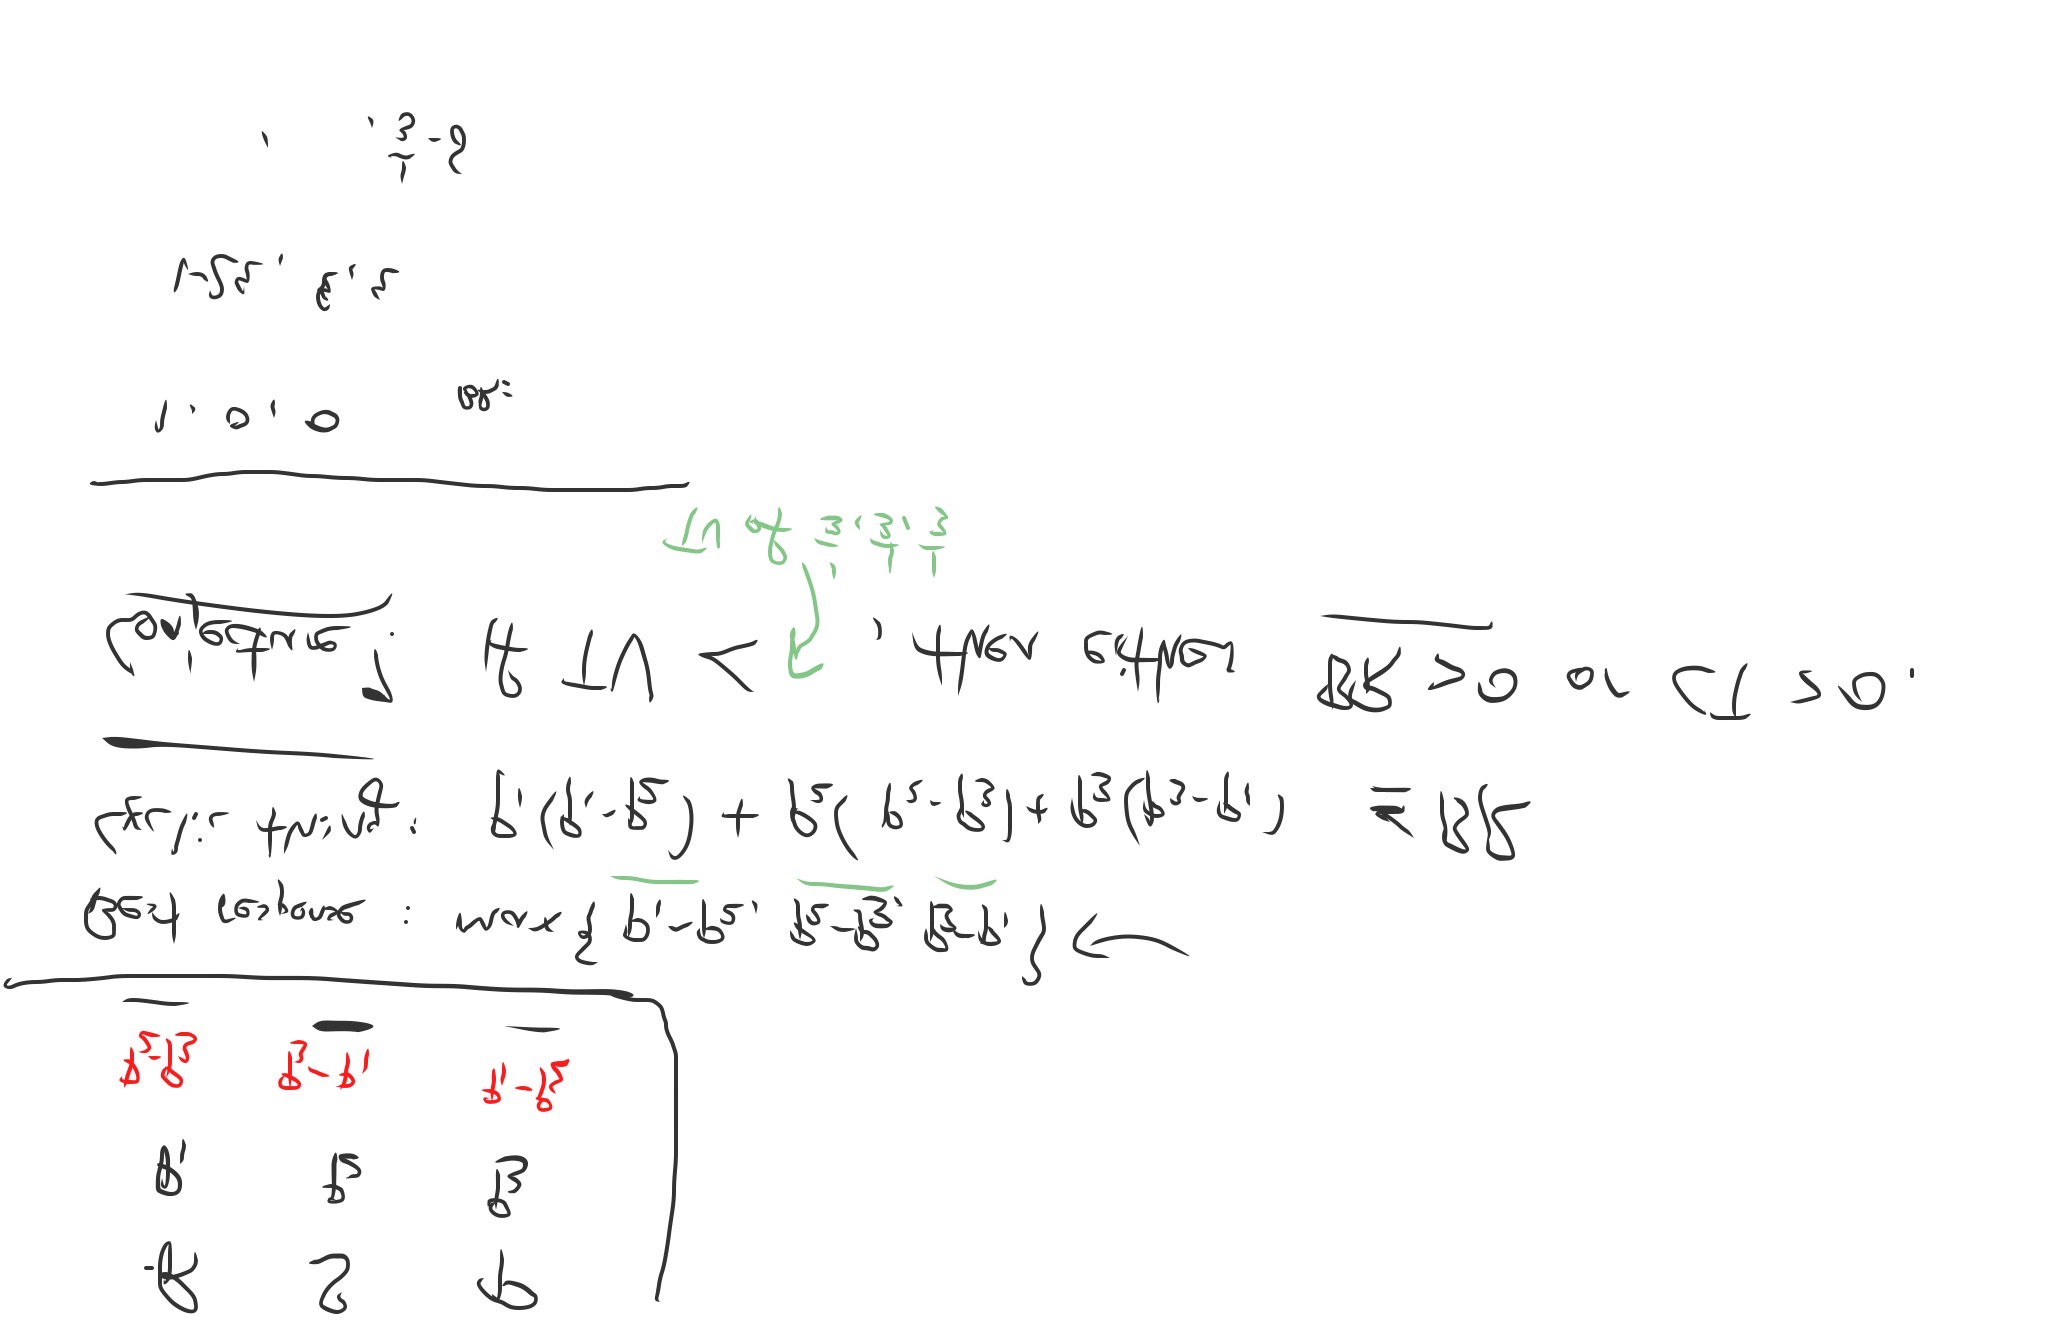 R S P
p₁ p₂ p₃
p₂-p₃ p₃-p₁ p₁-p₂
Best response : max{ p₁-p₂, p₂-p₃, p₃-p₁ }
Cyclic thing : p₁(p₁-p₂) + p₂(p₂-p₃) + p₃(p₃-p₁) ≤ BR
Conjecture? If TV < , then either BR > 0 or CT > 0.
TV of 1/3, 1/3, 1/3
1, 0, 0 BR=
1-2ε, ε, ε
, , 1/3-δ